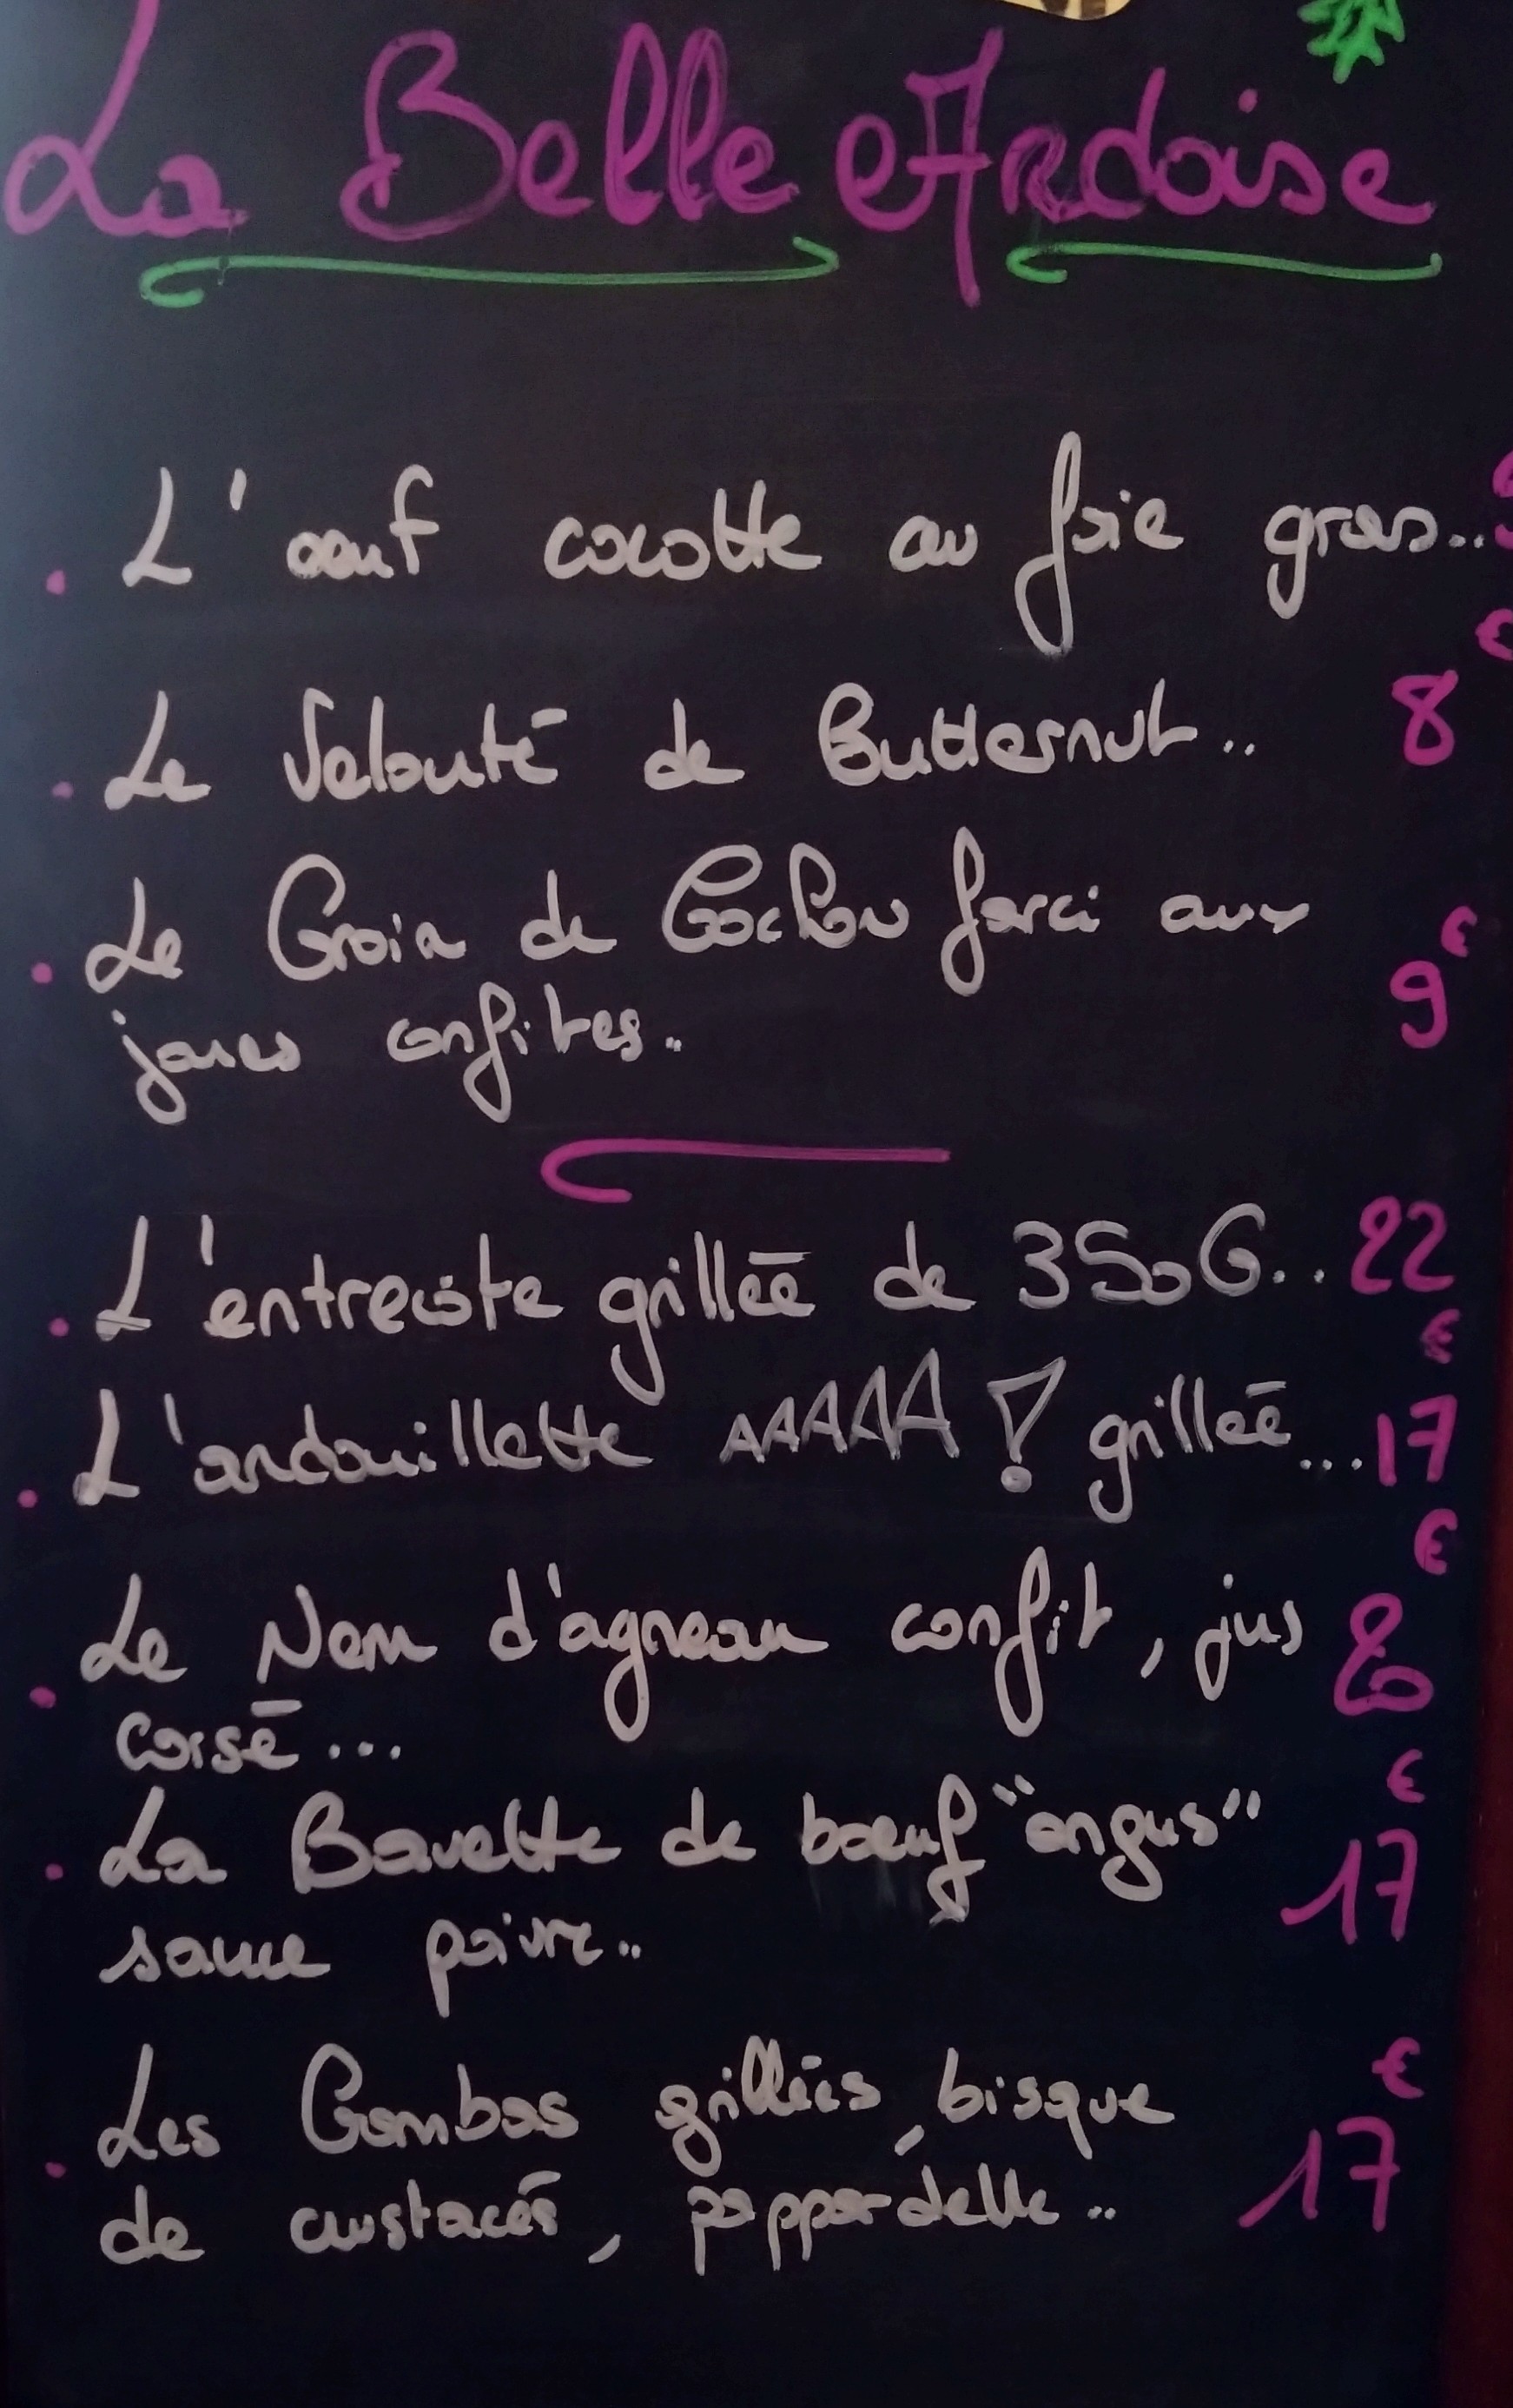 La Belle Ardoise
. L'oeuf cocotte au foie gras..
. Le Velouté de Butternut.. 8
€
. Le Groin de Cochon farci aux
joues confites.. 9
. L'entrecôte grillée de 350G.. 22
€
. L'andouillette AAAAA ! grillée... 17
€
. Le Nem d'agneau confit, jus 20
corsé...
€
. La Bavette de boeuf "angus" 17
sauce poivre..
€
. Les Gambas grillées, bisque
de crustacés, pappardelle.. 17